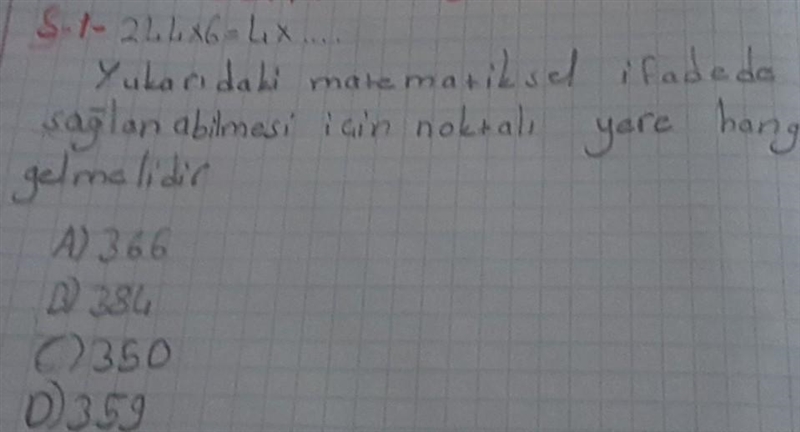 S-1- 244x6=4x....
Yukarıdaki matematiksel ifadede
sağlanabilmesi için noktalı yere hang
gelmelidir
A) 366
B) 384
C) 350
D) 359